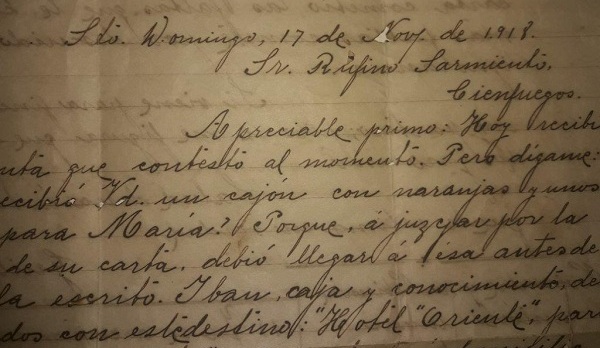 Sto. Domingo, 17 de Nov. de 1918.
Sr. Rufino Sarmiento,
Cienfuegos.
Apreciable primo: Hoy recibi
uta que contestó al momento. Pero dígame:
ecibió Vd. un cajón con naranjas y unos
para María? Porque, á juzgar por la
de su carta, debió llegar á ésa antes de
la escrito. Iban, caja y conocimiento, de
dos con este destino: "Hotel "Oriente", par